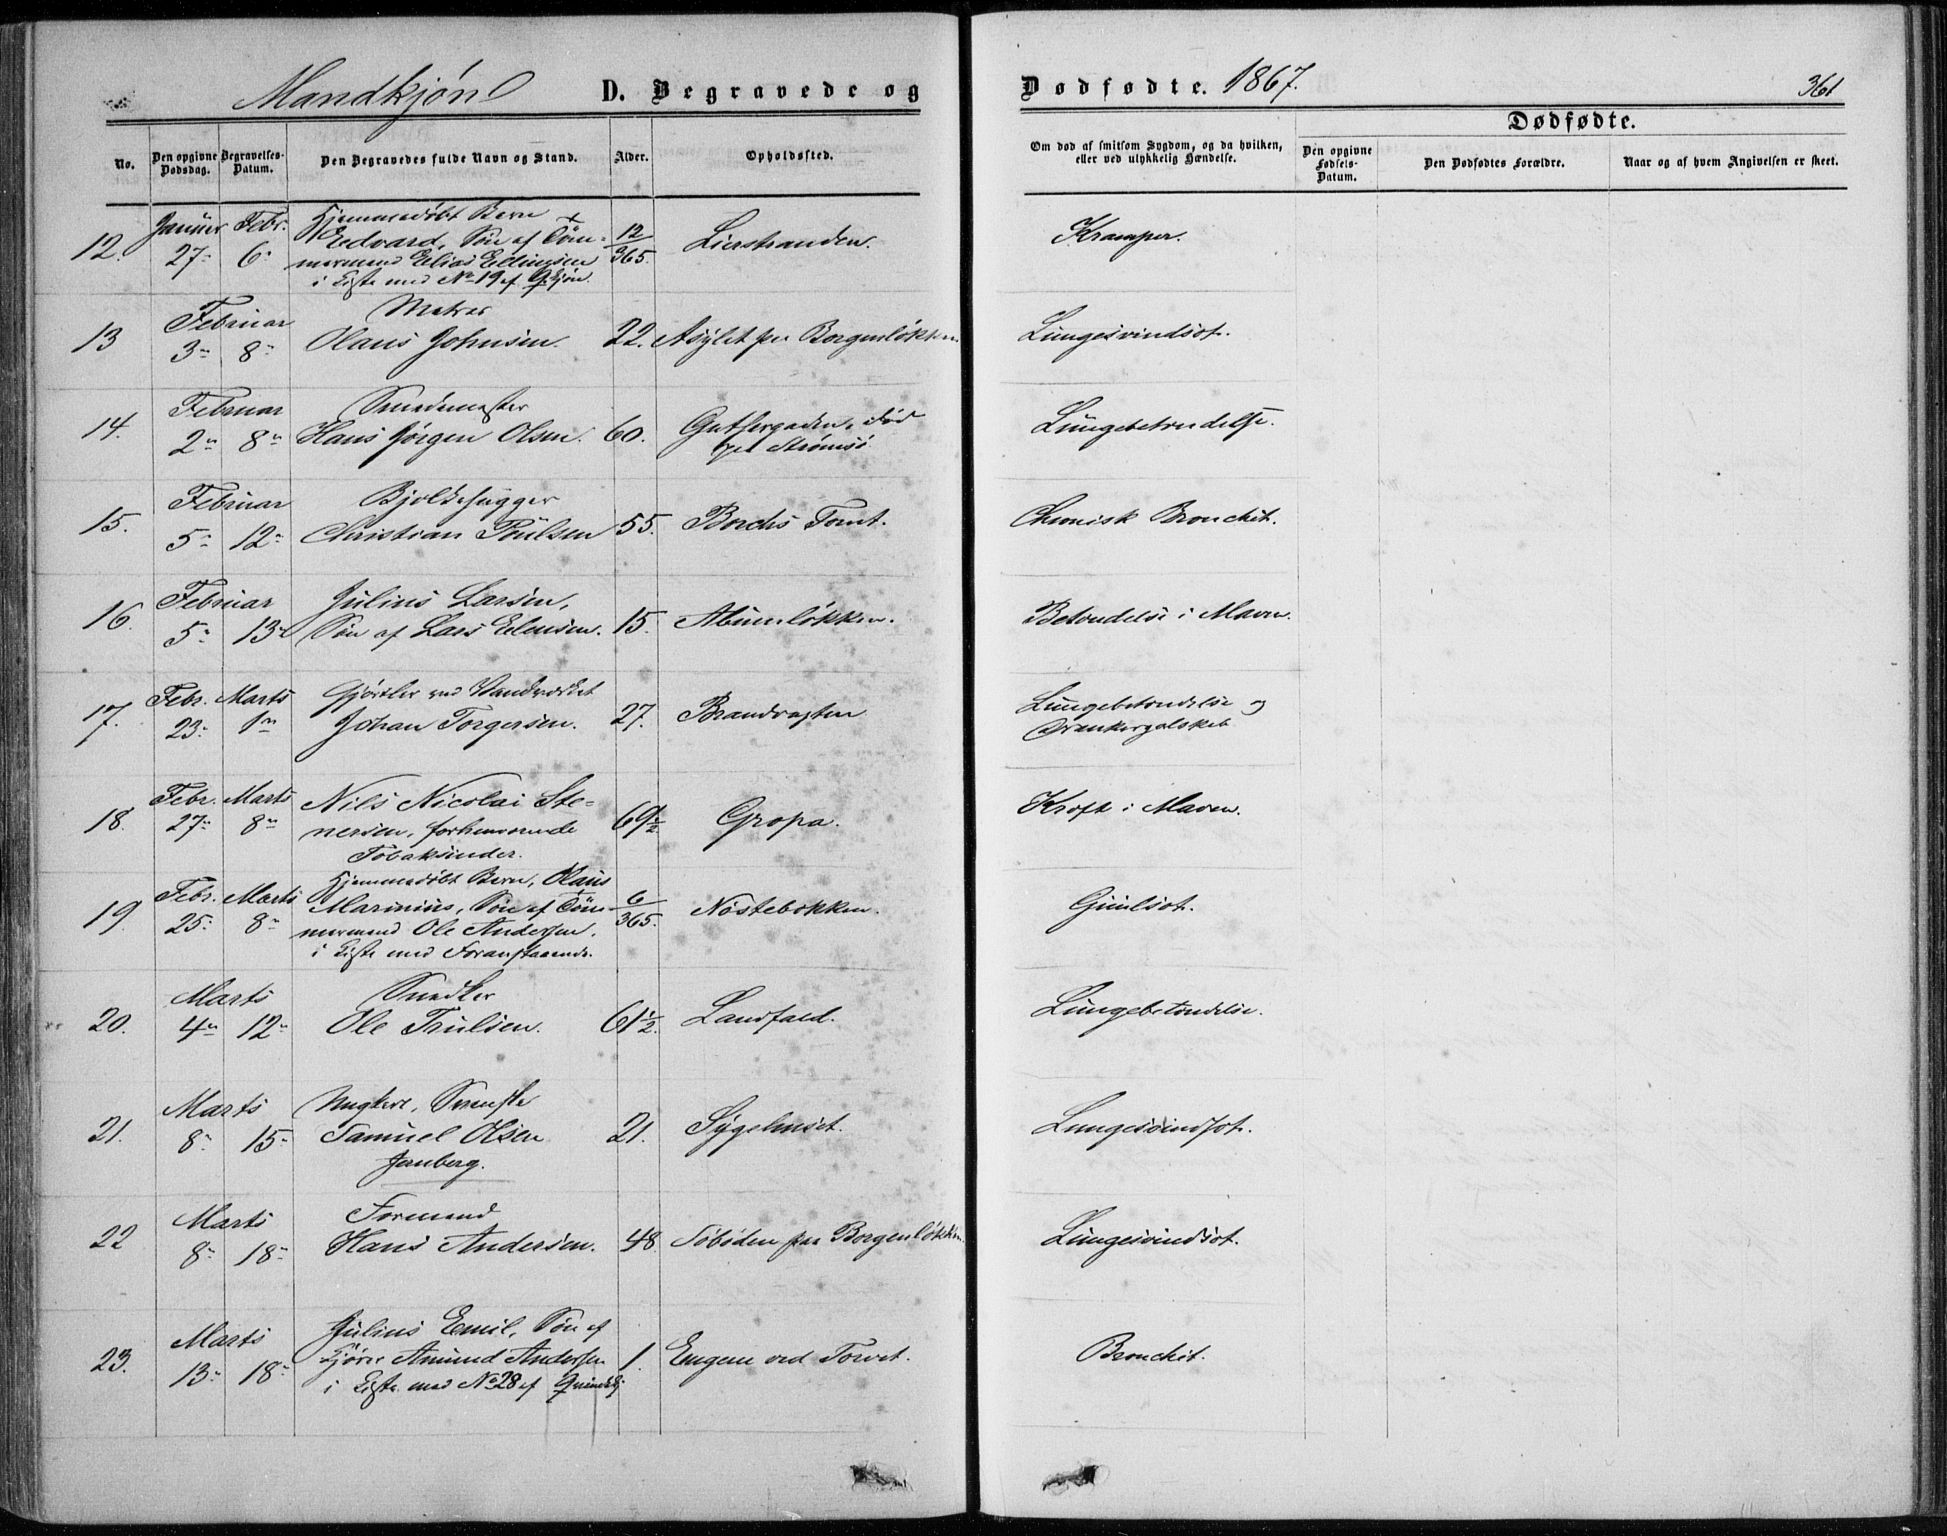 Mandkjøn D. Begravede og Dødfødte. 1867. 361
Dødfødte.
No. Den opgivne Dødsdag. Begravelses-Datum. Den Begravedes fulde Navn og Stand. Alder. Opholdssted. Om død af smitsom Sygdom, og da hvilken, eller ved ulykkelig Hændelse. Den opgivne Fødsels-Datum. Den Dødfødtes Forældre. Naar og af hvem Angivelsen er skeet.
Januar Febr. Hjemmedøbt Barn
12. 27. 6. Edvard, Søn af Tøm- 12/365. Lierstranden. Kramper.
mermand Elias Edingsen
i Kiste med No 19 af Qkjøn.
Februar Matros
13 3. 8. Olaus Johnsen. 22. Asylet paa Borgenløkken Lungesvindsot.
Februar Smedemester
14. 2. 8. Hans Jørgen Olsen. 60. død Lungebetændelse.
paa Strømsø
Februar Bjelkehugger
15. 5. 12. Christian Poulsen 55. Borchs Tomt. Chronisk Bronchit.
Februar Julius Larsen,
16. 5. 13. Søn af Lars Edensen. 15. Albumløkken. Betændelse i Maven.
Febr. Marts Gjørtler ved Vandværket
17. 23. 1. Johan Torgersen. 27. Brandvagten Lungebetændelse og
Drankergalskab
Febr. Marts Nils Nicolai Ste-
18. 27. 8. nersen, forhenværende 69 1/2 Gropa. Kræft i Maven.
Tobaksinder.
Febr. Marts Hjemmedøbt Barn, Olaus
19. 25. 8. Marinius, Søn af Tøm- 6/365. Nøstebakken. Guulsot.
mermand Ole Andersen.
i Kiste med Foranstaaende.
Marts Snedker
20. 4. 12. Ole Trulsen. 61 1/2. Landfald. Lungebetændelse.
Marts Ungkarl, Svenske
21. 8. 15. Samuel Olsen 21. Sygehuset. Lungesvindsot.
Jernberg.
Marts Formand
22 8. 18. Hans Andersen. 48. Søboden paa Borgenløkken. Lungesvindsot.
Marts Julius Emil, Søn af
23. 13. 18. Kjører Amund Andersen 1. Engene ved Torvet. Bronchit.
i Kiste med No 28 af Qvindekj